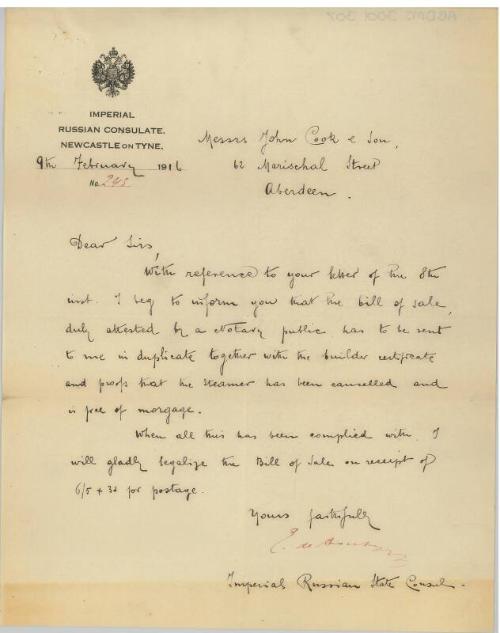 IMPERIAL
RUSSIAN CONSULATE.
NEWCASTLE ON TYNE.
9th February 1916
No 245
Messrs John Cook & Son,
62 Marischal Street
Aberdeen.
Dear Sirs,
With reference to your letter of the 8th
inst. I beg to inform you that the bill of sale,
duly attested by a Notary public has to be sent
to me in duplicate together with the builder certificate
and proofs that the steamer has been cancelled and
is free of morgage.
When all this has been complied with, I
will gladly legalize the Bill of Sale on receipt of
6/5 + 3d for postage.
Yours faithfully
Imperial Russian State Consul.